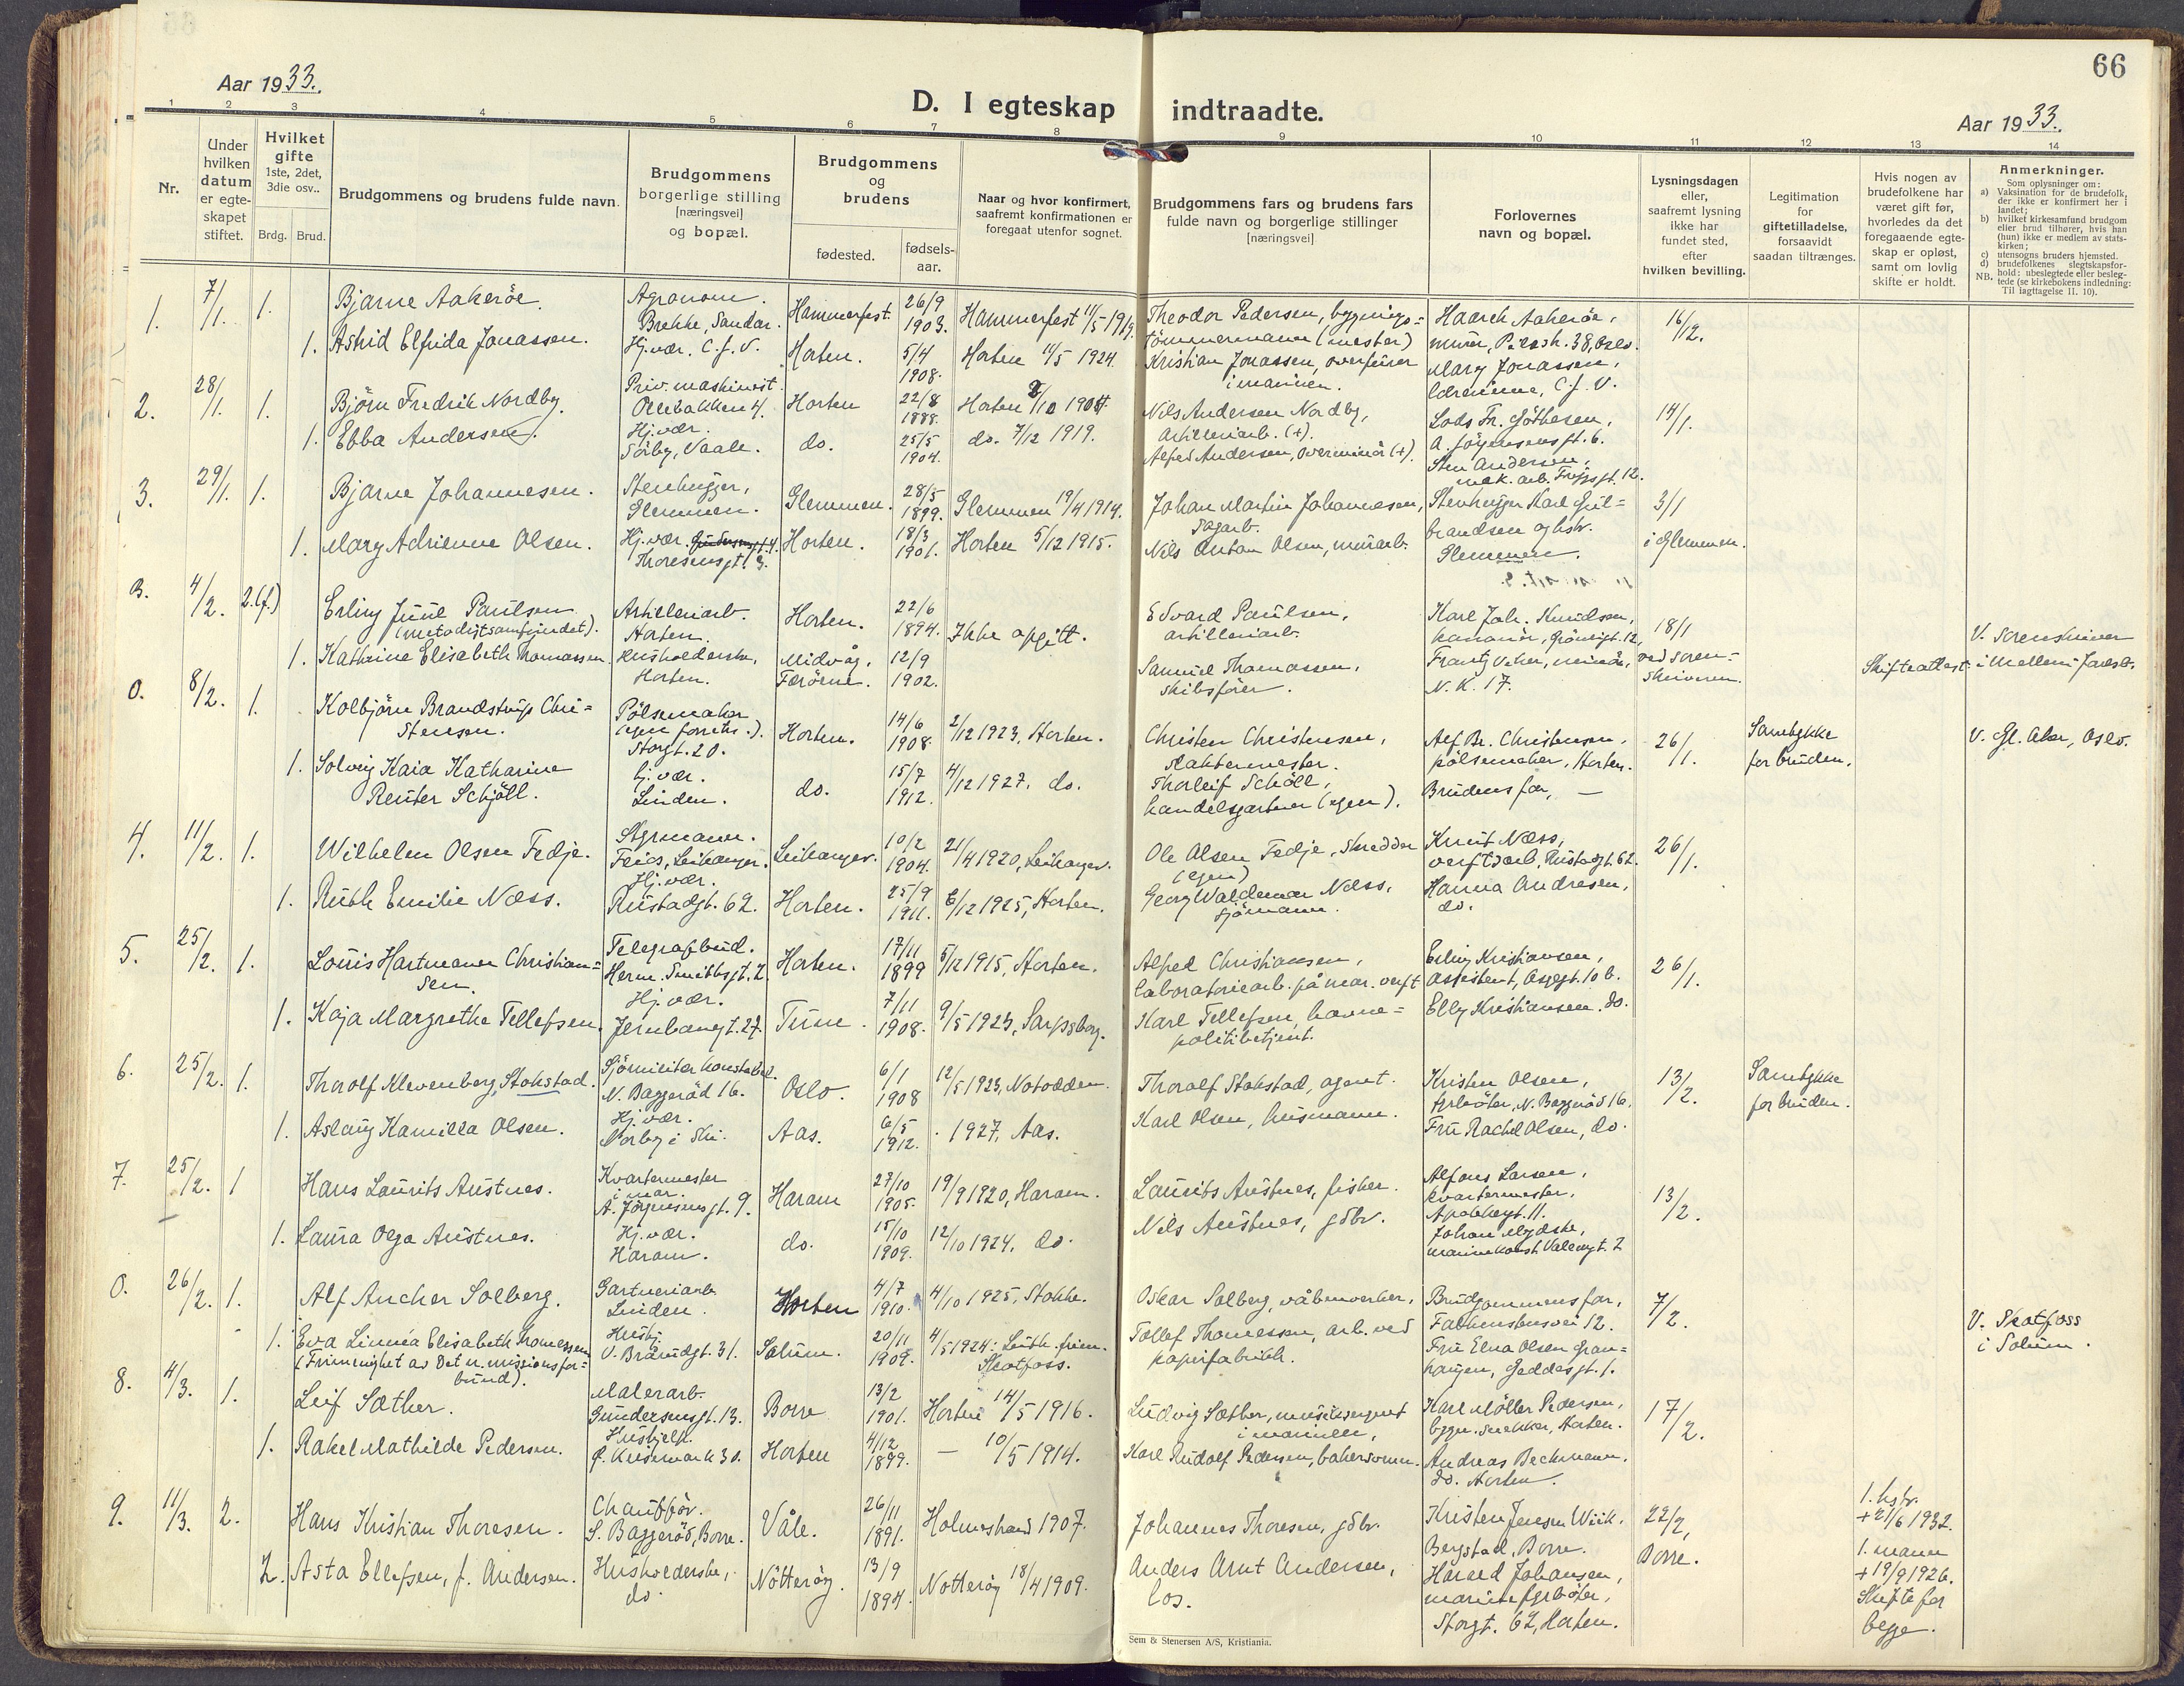 66
Aar 1933.
D. I egteskap indtraadte.
Aar 1933.
1 2 3 4 5 6 7 8 9 10 11 12 13 14
Nr.
Under hvilken datum er egteskapet stiftet.
Hvilket gifte 1ste, 2det, 3die osv..
Brdg. Brud.
Brudgommens og brudens fulde navn.
Brudgommens borgerlige stilling [næringsvei] og bopæl.
Brudgommens og brudens
fødested. fødsels-aar.
Naar og hvor konfirmert, saafremt konfirmationen er foregaat utenfor sognet.
Brudgommens fars og brudens fars fulde navn og borgerlige stillinger [næringsvei]
Forlovernes navn og bopæl.
Lysningsdagen eller, saafremt lysning ikke har fundet sted, efter hvilken bevilling.
Legitimation for giftetilladelse, forsaavidt saadan tiltrænges.
Hvis nogen av brudefolkene har været gift før, hvorledes da det foregaaende egteskap er opløst, samt om lovlig skifte er holdt.
Anmerkninger.
Som oplysninger om:
a) Vaksination for de brudefolk, der ikke er konfirmert her i landet;
b) hvilket kirkesamfund brudgom eller brud tilhører, hvis han (hun) ikke er medlem av statskirken;
c) utensogns bruders hjemsted.
d) brudefolkenes slegtskapsforhold: ubeslegtede eller beslegtede (se kirkebokens indledning:
NB. Til iagttagelse II. 10).
1. 7/1. 1. Bjarne Aakerøe. Agronom. Brekke, Sandar. Hammerfest 26/9 1903. Hammerfest 11/5 1919. Theodor Pedersen, bygningstømmermann (mester) Haarek Aakerøe, murer, 38, Oslo. 16/12.
1. Astrid Elfrida Jonassen. Hj.vær. C.J.V. Horten. 5/4 1908. Horten 11/5 1924. Kristian Jonassen, overfurer i marinen. Mary Jonassen, C.J.V.
2. 28/1. 1. Bjørn Fredrik Nordby. Priv. maskinist. Ollebakken 4. Horten 22/8 1888. Horten 8/10 1904. Nils Andersen Nordby, artilleriarb. (+). Lods Fr. Gøthesen, A. Jørgensensgt. 6. 14/1.
1. Ebba Andersen. Hj.vær. Sørby, Vaale. do. 25/5 1904. do. 7/12 1919. Alfred Andersen, overminør (+). Sten Andersen, mek. arb. Frøysgt. 12.
3. 29/1. 1. Bjarne Johannesen. Stenhugger, Glemmen. Glemmen. 28/5 1899. Glemmen 19/4 1914. Johan Martin Johannesen, sagarb. Stenhugger Karl Gulbrandsen og hstr. Glemmen. 3/1 i Glemmen.
1. Mary Adrienne Olsen. Hj.vær. Thoresensgt. 3. Horten. 18/3 1901. Horten 5/12 1915. Nils Anton Olsen, murarb.
3. 4/2. 2.(f.) Erling Juul Paulsen (metodistsamfundet). Artilleriarb. Horten. Horten. 22/6 1894. Ikke opgitt. Edvard Paulsen, artilleriarb. Karl Joh. Knudsen, kanonér, Grønligt. 12, 18/1 ved sorenskriveren. Skifteattest. V. Sorenskriver i Mellem Jarlsb.
1. Kathrine Elisabeth Thomassen. Husholderske, Horten. Midvåg, Færøerne. 12/9 1902. Samuel Thomassen, skibsfører. Frantz Veher, minør, N.K. 17.
0. 8/2. 1. Kolbjørn Brandstrup Christensen. Pølsemaker (egen forretn.). Storgt. 20. Horten. 14/6 1908. 2/12 1923, Horten. Christen Christensen, slaktermester. Alf Br. Christensen, pølsemaker, Horten. 26/1. Samtykke for bruden. V. Gl. Aker, Oslo.
1. Solveig Kaia Katharine Reuter Schjøll. Hj.vær. Linden. do. 15/7 1912. 4/12 1927. do. Thorleif Schöll, handelsgartner (egen). Brudens far, —
4. 11/2. 1. Wilhelm Olsen Fedje. Styrmann. Leikanger. Leikanger. 10/2 1904. 21/4 1920, Leikanger. Ole Olsen Fedje, skredder (egen) Knut Næss, verftsarb, Rustadgt. 62. 26/1.
1. Ruth Emilie Næss. Hj.vær. Rustadgt. 62. Horten. 25/9 1911. 6/12 1925, Horten. Georg Waldemar Næss, sjømann. Hanna Andresen, do.
5. 25/2. 1. Louis Hartmann Christiansen. Telegrafbud. Herm. Smithsgt. 7. Horten. 17/11 1899 5/12 1915, Horten. Alfred Christiansen, laboratoriearb. på mar. verft Erling Kristiansen, assistent, Aspgt. 10 b. 26/1.
1. Kaja Margrethe Tellefsen. Hj.vær. Jernbanegt. 27. Tune. 7/11 1908. 9/5 1923, Sarpsborg. Karl Tellefsen, havnepolitibetjent. Elly Kristiansen. do.
6. 25/2. 1. Thorolf Klevenberg Stokstad. Sjømiliter konstabel. N. Baggerød 16. Oslo. 6/1 1908 12/5 1923, Notodden. Thoralf Stokstad, agent. Kristen Olsen, fyrbøter, N. Baggerød 16. 13/2. Samtykke for bruden.
1. Aslaug Kamilla Olsen. Hj.vær. Norby i Ski. Aas. 6/5 1912. 1927, Aas. Karl Olsen, husmann. Fru Rachel Olsen, do.
7. 25/2. 1 Hans Laurits Austnes. Kvartermester i mar. A. Jørgensensgt. 9. Haram 27/10 1905. 19/9 1920, Haram. Laurits Austnes, fisker. Alfons Larsen, kvartermester, Apotekergt. 11. 13/2.
1. Laura Olga Austnes. Hj.vær. Haram. do. 15/10 1909. 12/10 1924. do. Nils Austnes, gdbr. Johan Mydske, marinekonst. Valengt. 7
0. 26/2. 1. Alf Ancher Solberg. Gartneriarb Linden. Horten 4/7 1910. 4/10 1925, Stokke. Oskar Solberg, våbenverker. Brudgommens far, Falkenstensvei 52. 7/2. V. Skotfoss i Solum.
1. Eva Linnéa Elisabeth Thomassen (Frimenighet av Det n. misjonsforbund). Hushj. V. Brårudgt. 31. Solum. 20/11 1909. 4/5 1924. Luth. frim. Skotfoss. Tollef Thomessen, arb. ved papirfabrikk. Fru Elna Olsen Granhaugen, Geddesgt. 1.
8. 4/3. 1. Leif Sæther. Malerarb. Gundersensgt. 13. Borre 13/2 1901. Horten 14/5 1916. Ludvig Sæther, musiksergeant i marinen, Karl Møller Pedersen, bygn.snekker, Horten. 17/2.
1. Rakel Mathilde Pedersen. Hushjelp. Horten 4/12 1899. — 10/5 1914. Karl Rudolf Pedersen, bakersvenn. Andreas Beckmann, do. Horten.
9. 11/3. 2. Hans Kristian Thoresen. Chauffør. S. Baggerød, Borre. Våle. 26/11 1891. Holmestrand 1907. Johannes Thoresen, gdbr. Kristen Jensen Wiik, Bergstad, Borre. 22/2, Borre. 1. hstr. + 21/6 1932.
2. Asta Ellefsen, f. Andersen. Husholderske, do. Nøtterøy. 13/9 1894. Nøtterøy 18/4 1909. Anders Arnt Andersen, los. Harald Johansen, marinefyrbøter, Storgt. 62, Horten. 1. mann + 19/9 1926. Skifte for begge.
Sem & Stenersen A/S, Kristiania.